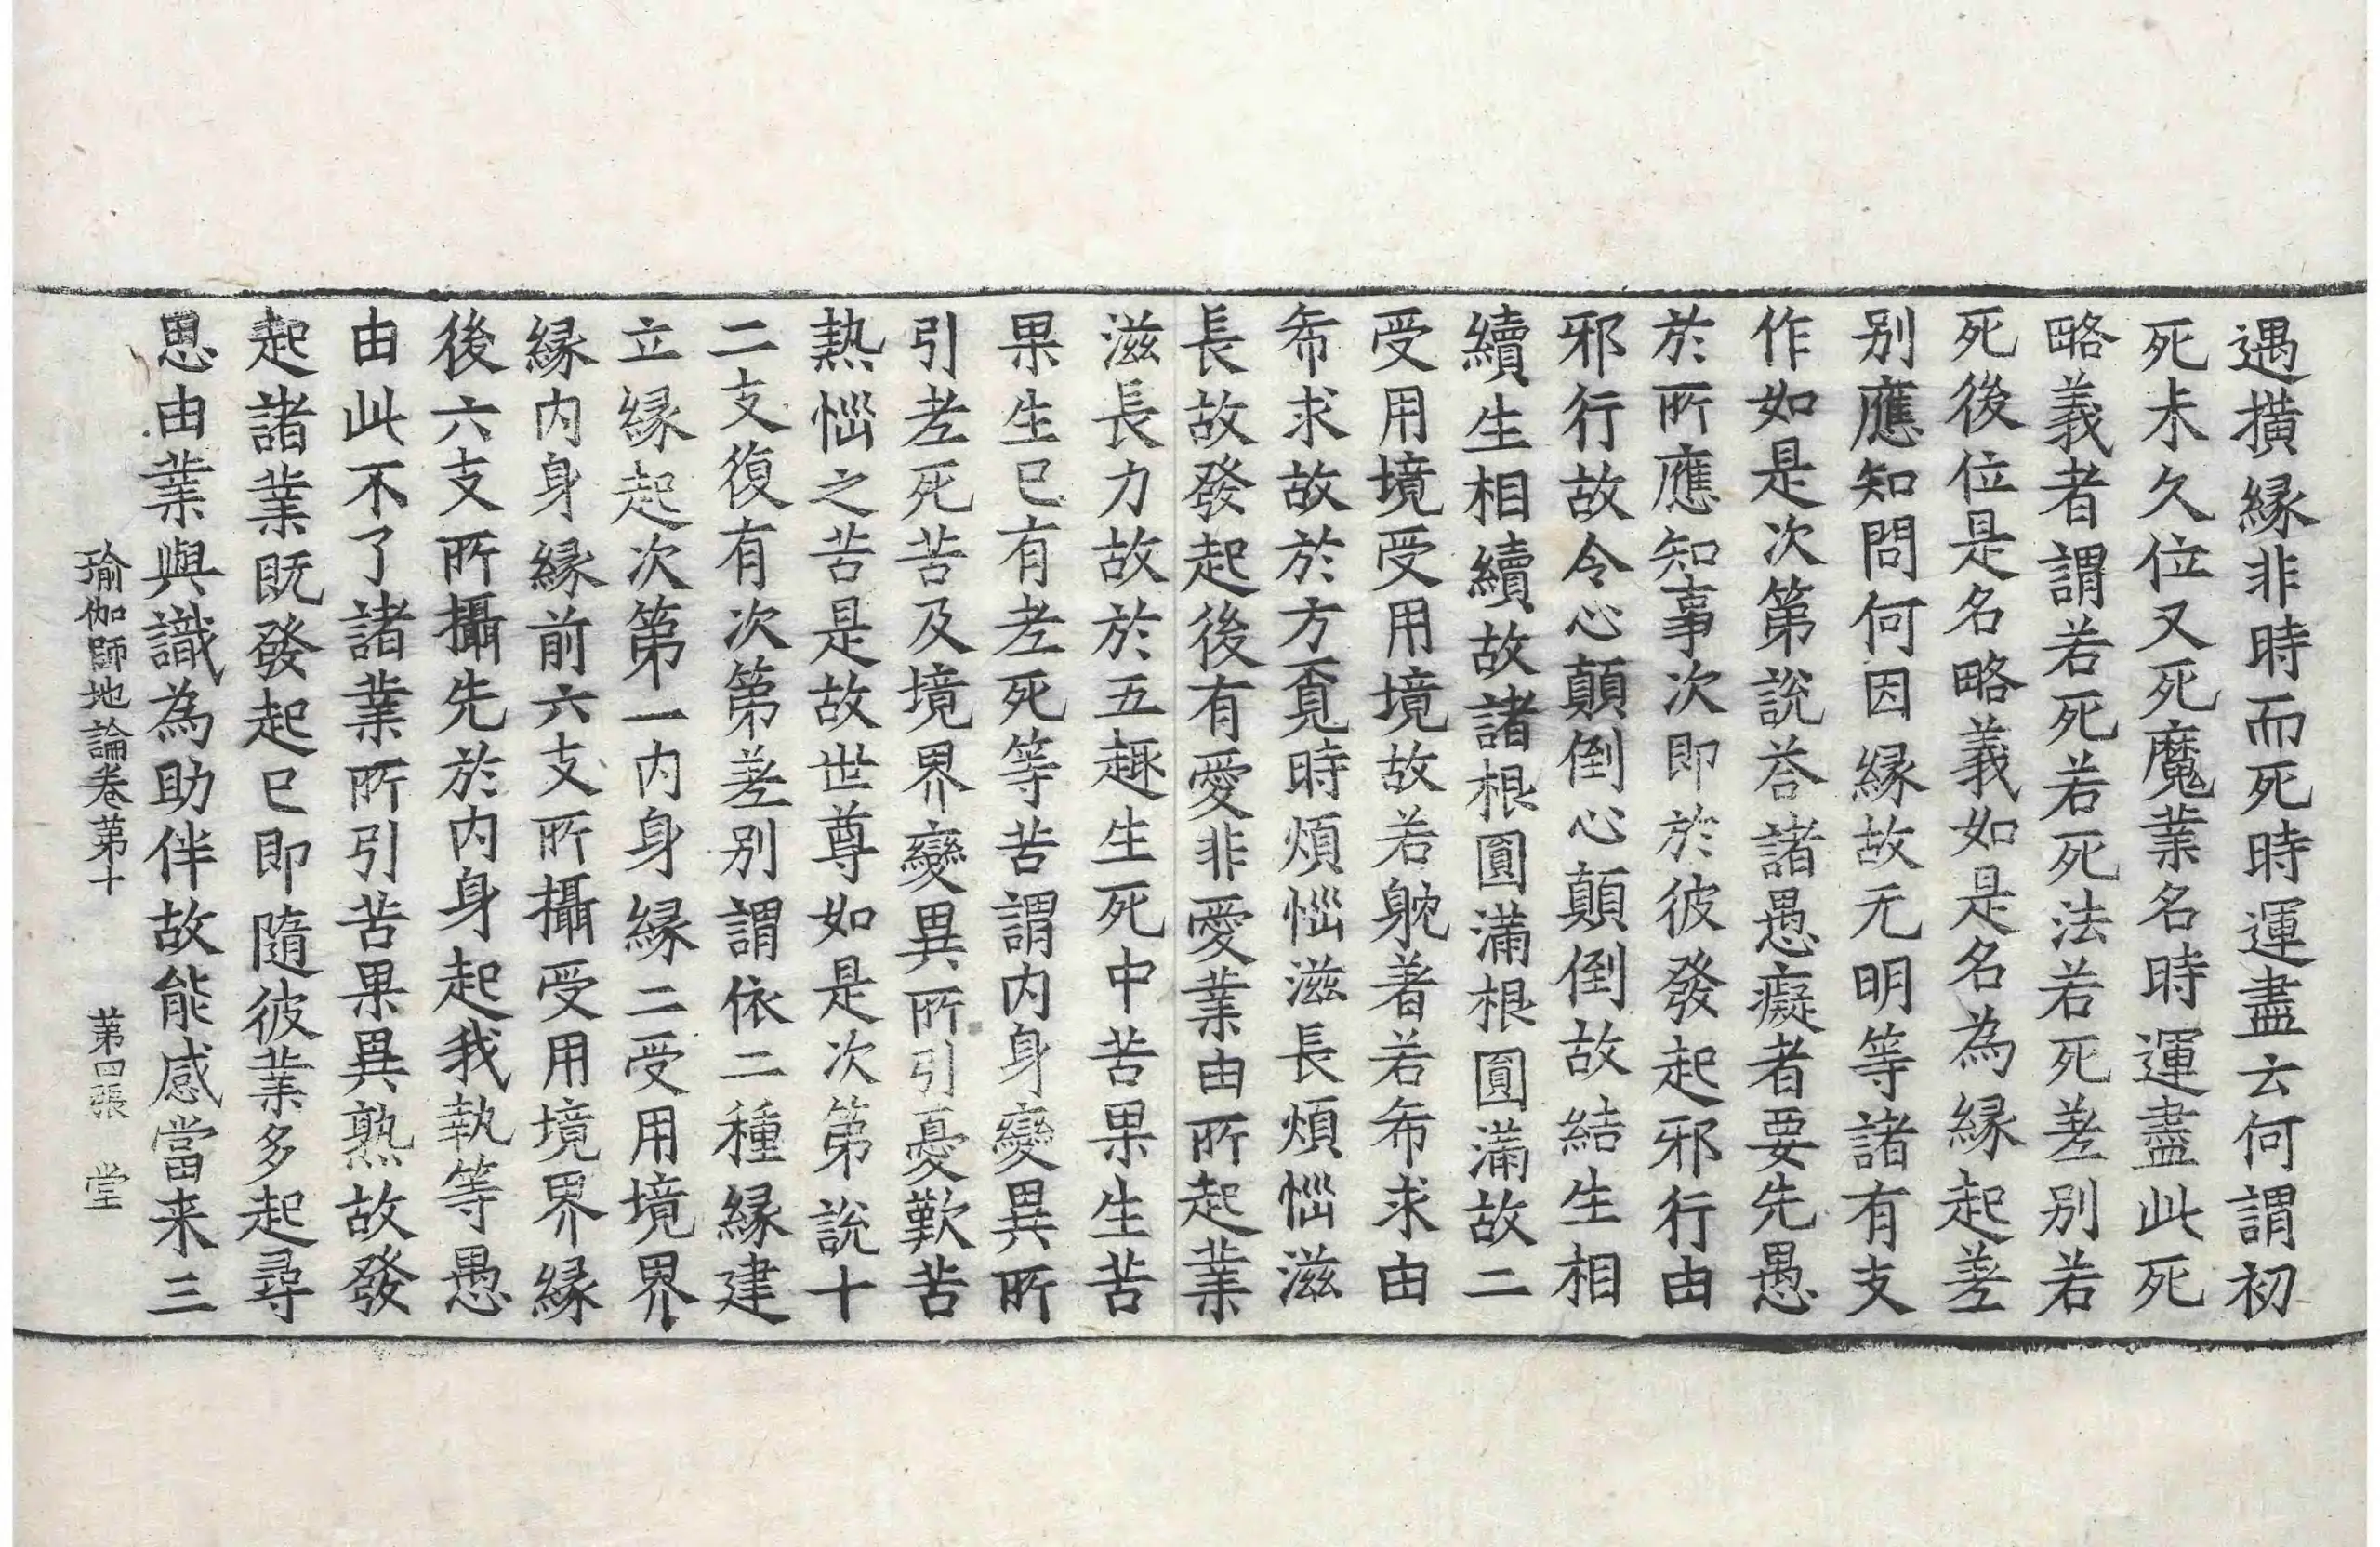 遇橫緣非時而死時運盡云何謂初
死未久位又死魔業名時運盡此死
略義者謂若死若死法若死差別若
死後位是名略義如是名為緣起差
別應知問何因緣故无明等諸有支
作如是次第說荅諸愚癡者要先愚
於所應知事次即於彼發起邪行由
邪行故令心顛倒心顛倒故結生相
續生相續故諸根圓滿根圓滿故二
受用境受用境故若躭著若希求由
希求故於方覓時煩惱滋長煩惱滋
長故發起後有愛非愛業由所起業
滋長力故於五趣生死中苦果生苦
果生已有老死等苦謂內身變異所
引老死苦及境界變異所引憂歎苦
熱惱之苦是故世尊如是次第說十
二支復有次第差別謂依二種緣建
立緣起次第一內身緣二受用境界
緣內身緣前六支所攝受用境界緣
後六支所攝先於內身起我執等愚
由此不了諸業所引苦果異熟故發
起諸業既發起已即隨彼業多起尋
思由業與識為助伴故能感當来三
瑜伽師地論卷第十　第四張　堂